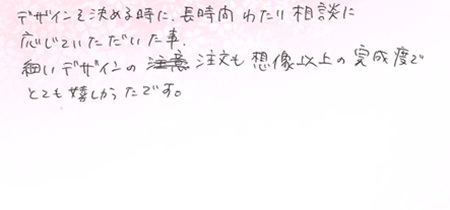 デザインを決める時に、長時間わたり相談に
応じていただいた事、
細いデザインの注文も想像以上の完成度で
とても嬉しかったです。